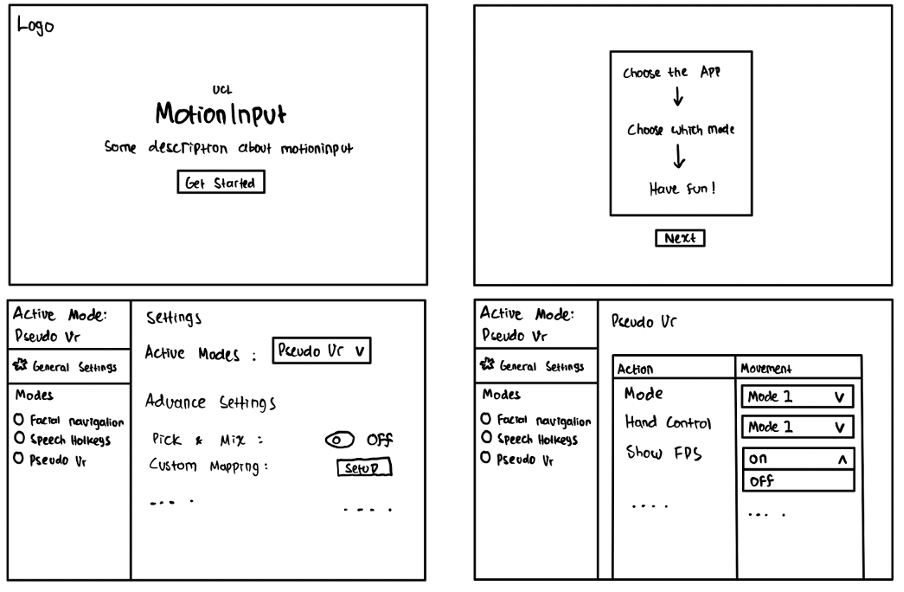 Logo
UCL
MotionInput
Some description about motioninput
Get Started
Choose the App
Choose which mode
Have fun!
Next
Active Mode:
Pseudo Vr
General Settings
Modes
Facial navigation
Speech Hotkeys
Pseudo Vr
Settings
Active Modes : Pseudo Vr v
Advance Settings
Pick & Mix : OFF
Custom Mapping : Setup
....
....
Active Mode:
Pseudo Vr
General Settings
Modes
Facial navigation
Speech Hotkeys
Pseudo Vr
Pseudo Vr
Action Movement
Mode Mode 1 v
Hand Control Mode 1 v
Show FPS on ʌ
OFF
....
....